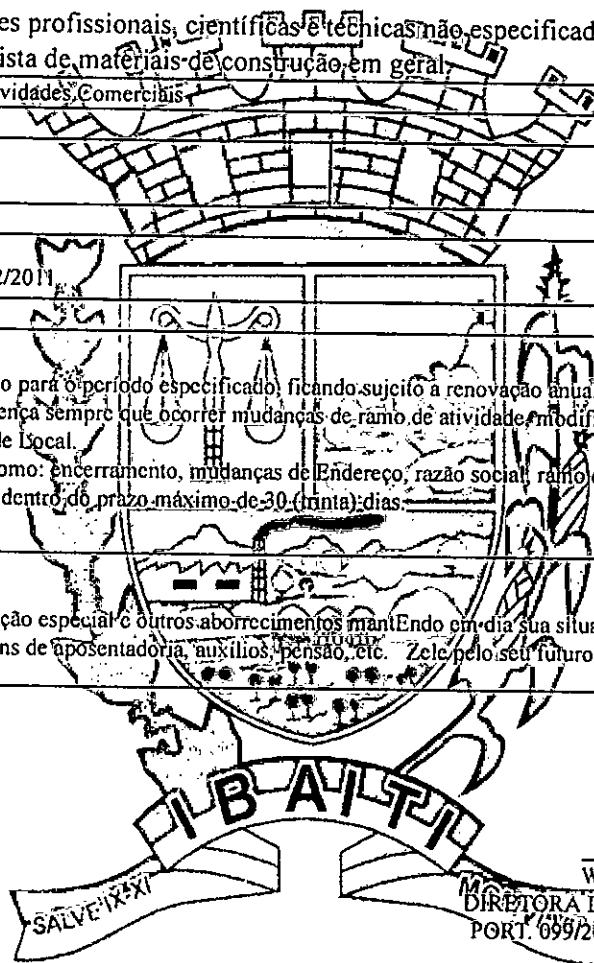 es profissionais, científicas e técnicas não especificad
ista de materiais de construção em geral.
vidades Comerciais
2/2011
o para o período especificado, ficando sujeito a renovação anual
ença sempre que ocorrer mudanças de ramo de atividade, modifi
de Local.
omo: encerramento, mudanças de Endereço, razão social, ramo
dentro do prazo máximo de 30 (trinta) dias.
ção especial e outros aborrecimentos mantEndo em dia sua situa
ns de aposentadoria, auxílios, pensão, etc. Zele pelo seu futuro
IBAITI
SALVE IX-XI
W
DIRETORA
PORT. 099/20